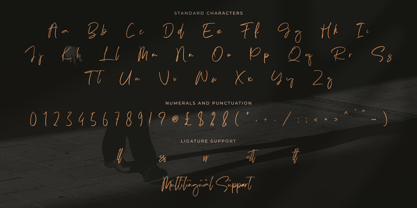 STANDARD CHARACTERS
Aa Bb Cc Dd Ee Ff Gg Hh Ii
Jj Kk Ll Mm Nn Oo Pp Qq Rr Ss
Tt Uu Vv Ww Xx Yy Zz
NUMERALS AND PUNCTUATION
0 1 2 3 4 5 6 7 8 9
LIGATURE SUPPORT
Multilingual Support